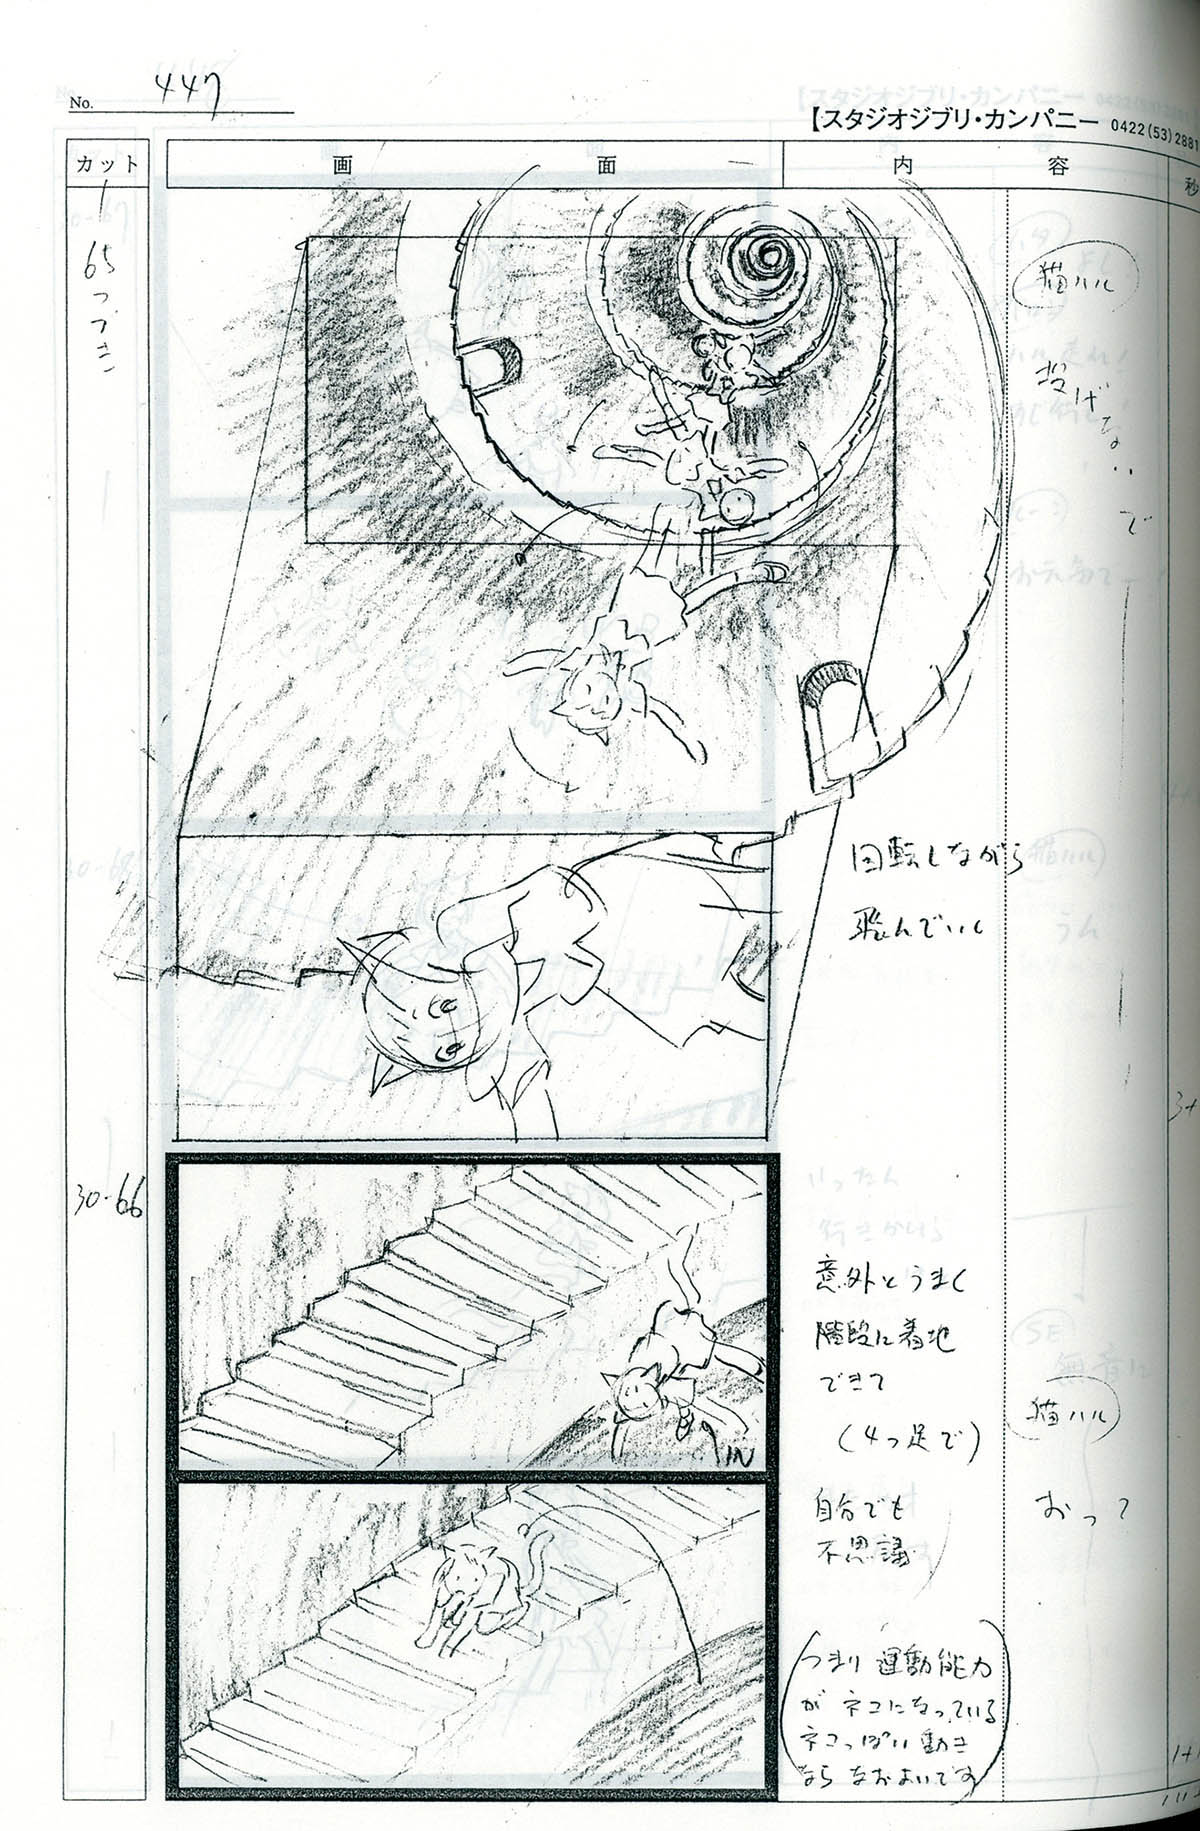 No. 447
【スタジオジブリ・カンパニー 0422(53)2881
カット
画 面
内 容
秒
65
つづき
猫ハル
投げないで
回転しながら
飛んでいく
3+
30-66
意外とうまく
階段に着地
できて
(4つ足で)
IN
猫ハル
おって
自分でも
不思議
(つまり 運動能力
が ネコになっている
ネコっぽい動き
ならなおよいです)
1+